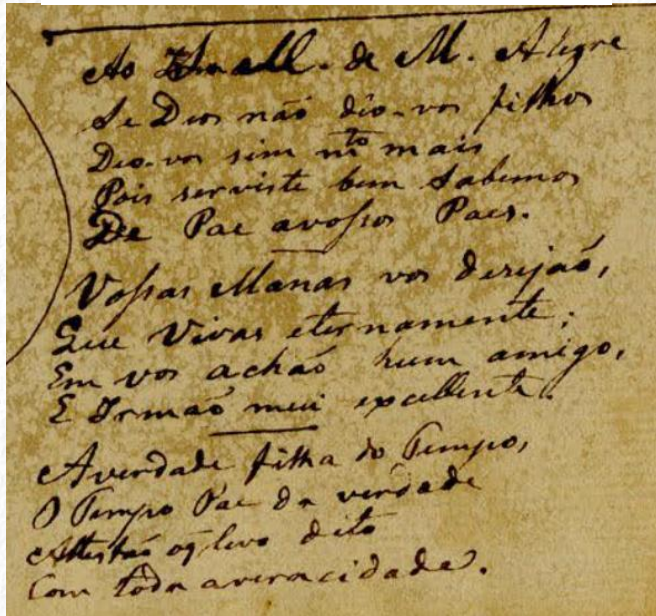 Ao Snr. M. de M. Alegre
Se Deos não dêo-vos filhos
Deo-vos sim mto mais
Pois serviste bem sabemos
De Pae avossos Paes.
Vossas Manas vos desejaõ,
Que Vivas eternamente;
Em vos achaõ hum amigo,
E Irmaõ mui excellente.
Averdade filha do Tempo,
O Tempo Pae da verdade
Attestaõ oq levo dito
Com toda averacidade.